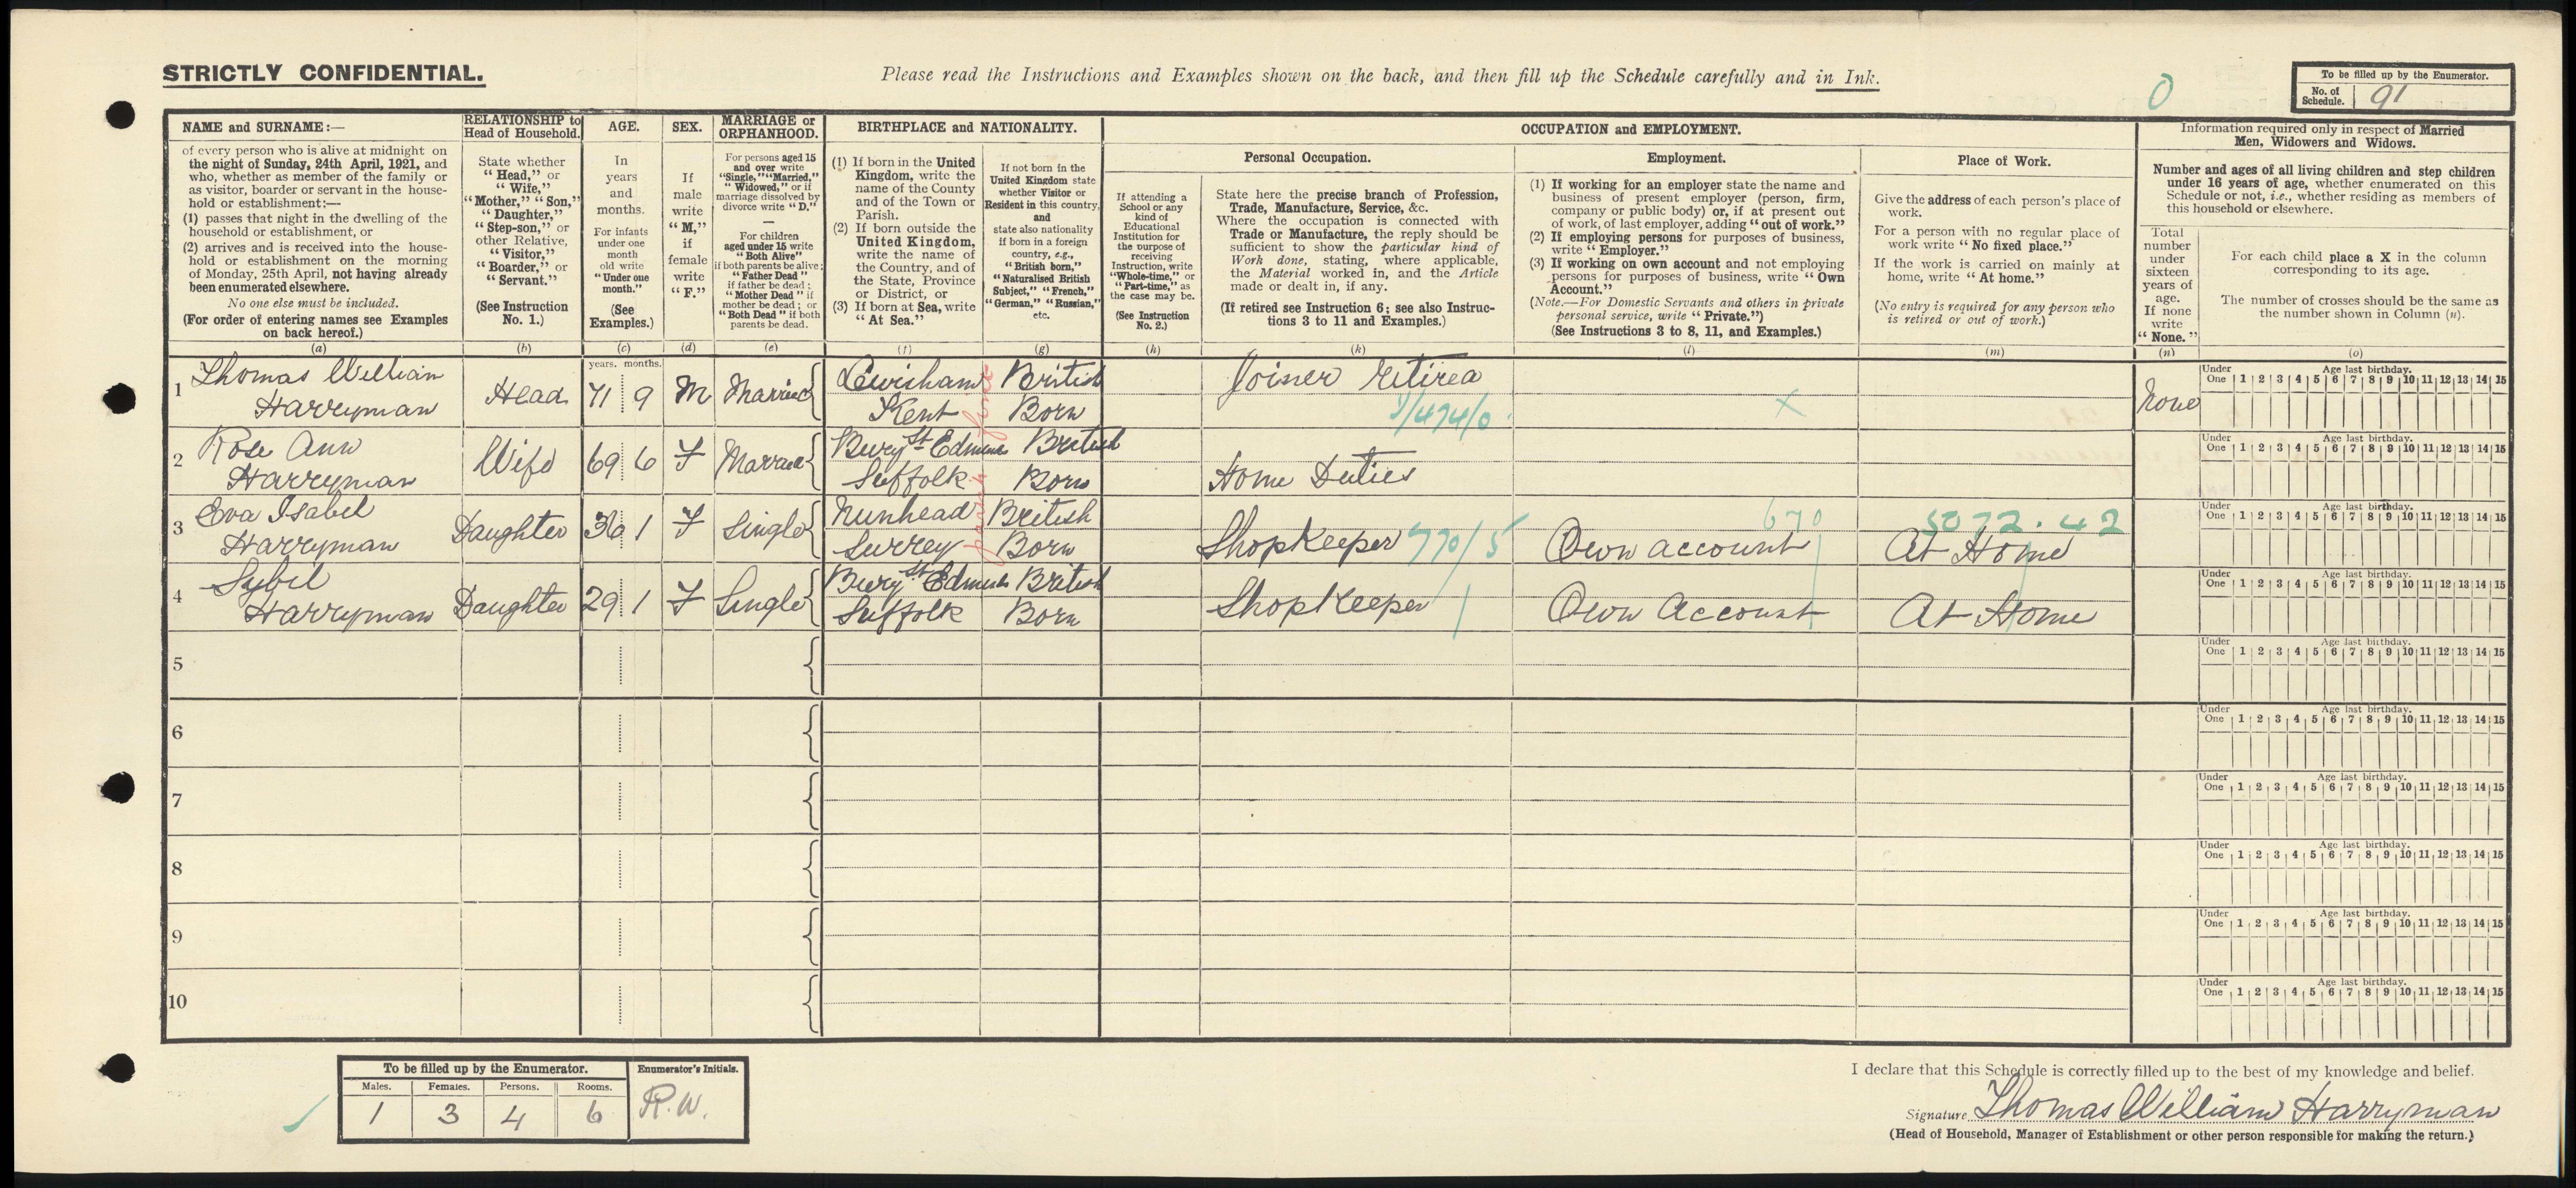 STRICTLY CONFIDENTIAL.
Please read the Instructions and Examples shown on the back, and then fill up the Schedule carefully and in Ink.
0
To be filled up by the Enumerator.
No. of Schedule. 91
NAME and SURNAME:—
of every person who is alive at midnight on
the night of Sunday, 24th April, 1921, and
who, whether as member of the family or
as visitor, boarder or servant in the house-
hold or establishment:—
(1) passes that night in the dwelling of the
household or establishment, or
(2) arrives and is received into the house-
hold or establishment on the morning
of Monday, 25th April, not having already
been enumerated elsewhere.
No one else must be included.
(For order of entering names see Examples
on back hereof.)
(a)
RELATIONSHIP to
Head of Household.
State whether
"Head," or
"Wife,"
"Mother," "Son,"
"Daughter,"
"Step-son," or
other Relative,
"Visitor,"
"Boarder," or
"Servant."
(See Instruction
No. 1.)
(b)
AGE.
In
years
and
months.
For infants
under one
month
old write
"Under one
month."
(See
Examples.)
(c)
SEX.
If
male
write
"M,"
if
female
write
"F."
(d)
MARRIAGE or
ORPHANHOOD.
For persons aged 15
and over write
"Single," "Married,"
"Widowed," or if
marriage dissolved by
divorce write "D."
—
For children
aged under 15 write
"Both Alive"
if both parents be alive;
"Father Dead"
if father be dead;
"Mother Dead" if
mother be dead; or
"Both Dead" if both
parents be dead.
(e)
BIRTHPLACE and NATIONALITY.
(1) If born in the United
Kingdom, write the
name of the County
and of the Town or
Parish.
(2) If born outside the
United Kingdom,
write the name of
the Country, and of
the State, Province
or District, or
(3) If born at Sea, write
"At Sea."
(f)
If not born in the
United Kingdom state
whether Visitor or
Resident in this country,
and
state also nationality
if born in a foreign
country, e.g.,
"British born,"
"Naturalised British
Subject," "French,"
"German," "Russian,"
etc.
(g)
OCCUPATION and EMPLOYMENT.
If attending a
School or any
kind of
Educational
Institution for
the purpose of
receiving
Instruction, write
"Whole-time," or
"Part-time," as
the case may be.
(See Instruction
No. 2.)
(h)
Personal Occupation.
State here the precise branch of Profession,
Trade, Manufacture, Service, &c.
Where the occupation is connected with
Trade or Manufacture, the reply should be
sufficient to show the particular kind of
Work done, stating, where applicable,
the Material worked in, and the Article
made or dealt in, if any.
(If retired see Instruction 6; see also Instruc-
tions 3 to 11 and Examples.)
(k)
Employment.
(1) If working for an employer state the name and
business of present employer (person, firm,
company or public body) or, if at present out
of work, of last employer, adding "out of work."
(2) If employing persons for purposes of business,
write "Employer."
(3) If working on own account and not employing
persons for purposes of business, write "Own
Account."
(Note.—For Domestic Servants and others in private
personal service, write "Private.")
(See Instructions 3 to 8, 11, and Examples.)
(l)
Place of Work.
Give the address of each person's place of
work.
For a person with no regular place of
work write "No fixed place."
If the work is carried on mainly at
home, write "At home."
(No entry is required for any person who
is retired or out of work.)
(m)
Information required only in respect of Married
Men, Widowers and Widows.
Number and ages of all living children and step children
under 16 years of age, whether enumerated on this
Schedule or not, i.e., whether residing as members of
this household or elsewhere.
Total
number
under
sixteen
years of
age.
If none
write
"None."
(n)
For each child place a X in the column
corresponding to its age.
The number of crosses should be the same as
the number shown in Column (n).
(o)
years. months.
1 Thomas William Harryman Head 71 9 M Married Lewisham Kent British Born Joiner retired 9/474/0 x None
2 Rose Ann Harryman Wife 69 6 F Married Bury St Edmunds Suffolk British Born Home Duties
3 Eva Isabel Harryman Daughter 36 1 F Single Nunhead Surrey British Born Shopkeeper 770/5 Own account 670 At Home 5072.42
4 Sybil Harryman Daughter 29 1 F Single Bury St Edmunds Suffolk British Born Shopkeeper Own Account At Home
5
6
7
8
9
10
Under One Age last birthday. 1 2 3 4 5 6 7 8 9 10 11 12 13 14 15
Under One Age last birthday. 1 2 3 4 5 6 7 8 9 10 11 12 13 14 15
Under One Age last birthday. 1 2 3 4 5 6 7 8 9 10 11 12 13 14 15
Under One Age last birthday. 1 2 3 4 5 6 7 8 9 10 11 12 13 14 15
Under One Age last birthday. 1 2 3 4 5 6 7 8 9 10 11 12 13 14 15
Under One Age last birthday. 1 2 3 4 5 6 7 8 9 10 11 12 13 14 15
Under One Age last birthday. 1 2 3 4 5 6 7 8 9 10 11 12 13 14 15
Under One Age last birthday. 1 2 3 4 5 6 7 8 9 10 11 12 13 14 15
Under One Age last birthday. 1 2 3 4 5 6 7 8 9 10 11 12 13 14 15
Under One Age last birthday. 1 2 3 4 5 6 7 8 9 10 11 12 13 14 15
To be filled up by the Enumerator.
Males. Females. Persons. Rooms.
1 3 4 6
Enumerator's Initials.
R.W.
I declare that this Schedule is correctly filled up to the best of my knowledge and belief.
Signature Thomas William Harryman
(Head of Household, Manager of Establishment or other person responsible for making the return.)